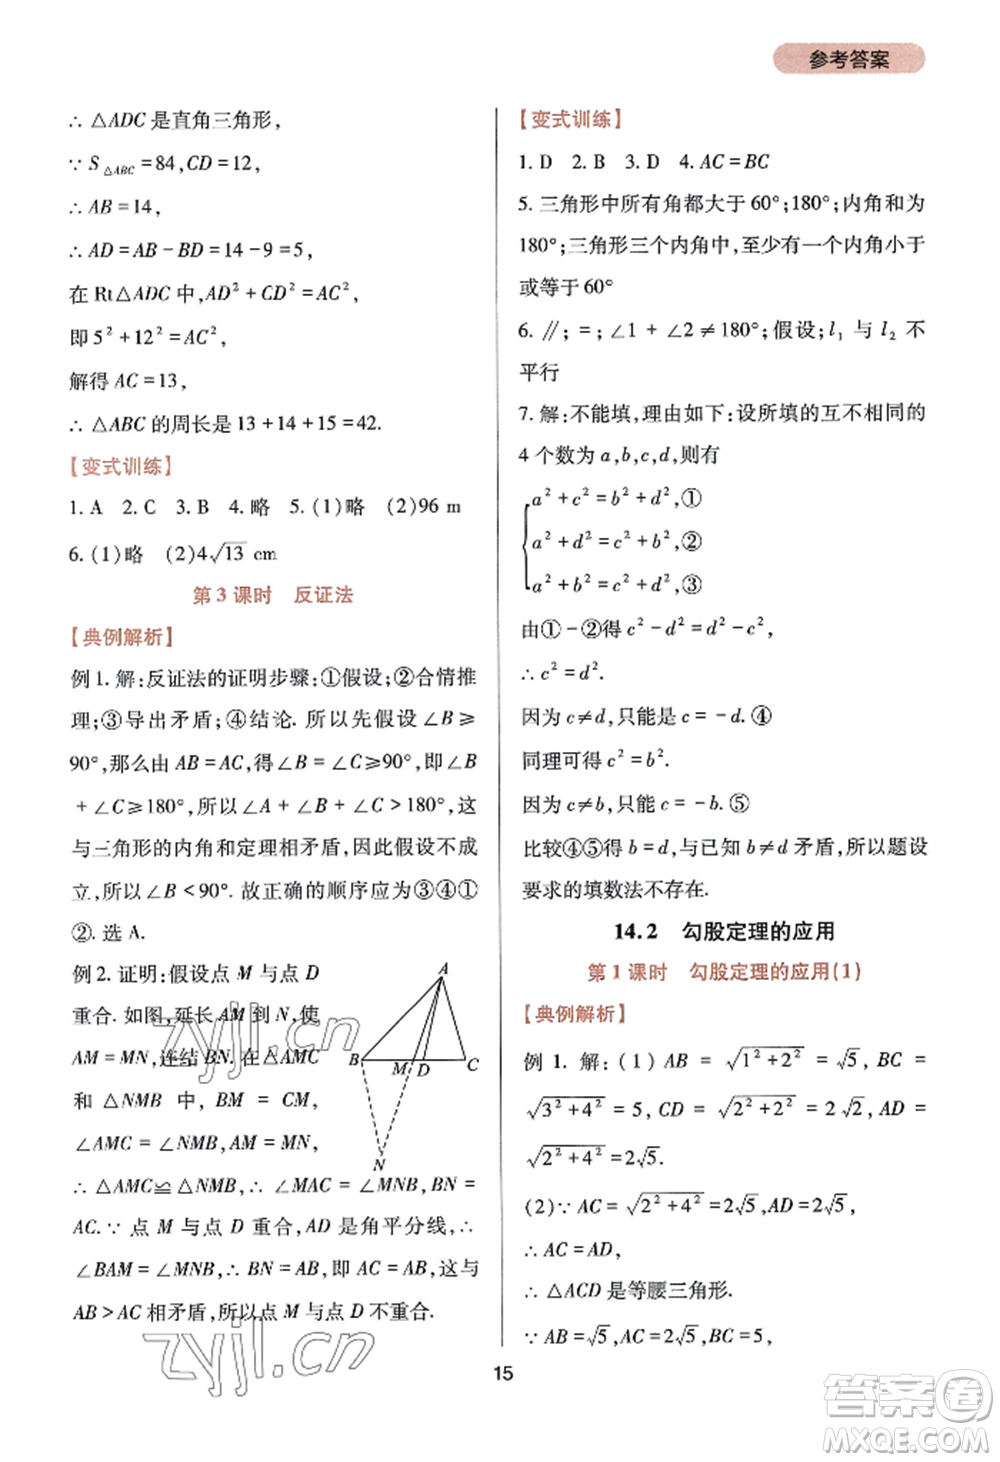 参考答案
∴ △ADC 是直角三角形,
∵ S△ABC = 84, CD = 12,
∴ AB = 14,
∴ AD = AB − BD = 14 − 9 = 5,
在 Rt△ADC 中, AD² + CD² = AC²,
即 5² + 12² = AC²,
解得 AC = 13,
∴ △ABC 的周长是 13 + 14 + 15 = 42.
【变式训练】
1. A 2. C 3. B 4. 略 5. (1)略 (2)96 m
6. (1)略 (2)4√13 cm
第 3 课时 反证法
【典例解析】
例 1. 解:反证法的证明步骤:①假设;②合情推
理;③导出矛盾;④结论. 所以先假设 ∠B ≥
90°,那么由 AB = AC,得 ∠B = ∠C ≥ 90°,即 ∠B
+ ∠C ≥ 180°,所以 ∠A + ∠B + ∠C > 180°,这
与三角形的内角和定理相矛盾,因此假设不成
立,所以 ∠B < 90°. 故正确的顺序应为③④①
②. 选 A.
例 2. 证明:假设点 M 与点 D
重合. 如图,延长 AM 到 N,使
AM = MN,连结 BN. 在 △AMC
和 △NMB 中, BM = CM,
∠AMC = ∠NMB, AM = MN,
∴ △AMC ≌ △NMB, ∴ ∠MAC = ∠MNB, BN =
AC. ∵ 点 M 与点 D 重合, AD 是角平分线, ∴
∠BAM = ∠MNB, ∴ BN = AB,即 AC = AB,这与
AB > AC 相矛盾,所以点 M 与点 D 不重合.
A
B
M
D
C
N
【变式训练】
1. D 2. B 3. D 4. AC = BC
5. 三角形中所有角都大于 60°;180°;内角和为
180°;三角形三个内角中,至少有一个内角小于
或等于 60°
6. ∥; =; ∠1 + ∠2 ≠ 180°;假设; l₁ 与 l₂ 不
平行
7. 解:不能填,理由如下:设所填的互不相同的
4 个数为 a,b,c,d,则有
a² + c² = b² + d²,①
a² + d² = c² + b²,②
a² + b² = c² + d²,③
由①−②得 c² − d² = d² − c²,
∴ c² = d².
因为 c ≠ d,只能是 c = − d. ④
同理可得 c² = b².
因为 c ≠ b,只能 c = − b. ⑤
比较④⑤得 b = d,与已知 b ≠ d 矛盾,所以题设
要求的填数法不存在.
14.2 勾股定理的应用
第 1 课时 勾股定理的应用(1)
【典例解析】
例 1. 解:(1) AB = √1² + 2² = √5, BC =
√3² + 4² = 5, CD = √2² + 2² = 2√2, AD =
√2² + 4² = 2√5.
(2)∵ AC = √2² + 4² = 2√5, AD = 2√5,
∴ AC = AD,
∴ △ACD 是等腰三角形.
∵ AB = √5, AC = 2√5, BC = 5,
15
zyjl.cn
zyjl.cn
答案圈
MXQE.COM